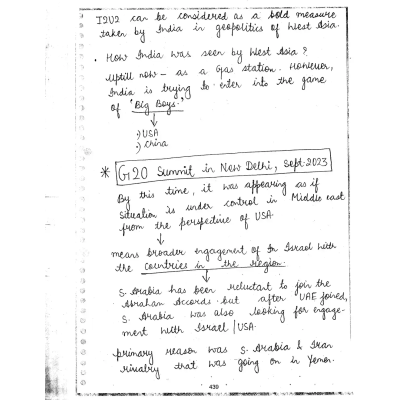 I2U2 can be considered as a bold measure
taken by India in geopolitics of West Asia.
• How India was seen by West Asia?
Uptill now - as a Gas station. However,
India is trying to enter into the game
of "Big Boys."
↓
→ USA
→ China
* G20 Summit in New Delhi, Sept-2023
By this time, it was appearing as if
situation is under control in Middle east
from the perspective of USA.
↓
means broader engagement of Israel with
the countries in the region.
↓
S. Arabia has been reluctant to join the
Abraham Accords but after UAE joined,
S. Arabia was also looking for engage-
ment with Israel/USA.
primary reason was S. Arabia & Iran
rivalry that was going on in Yemen.
439